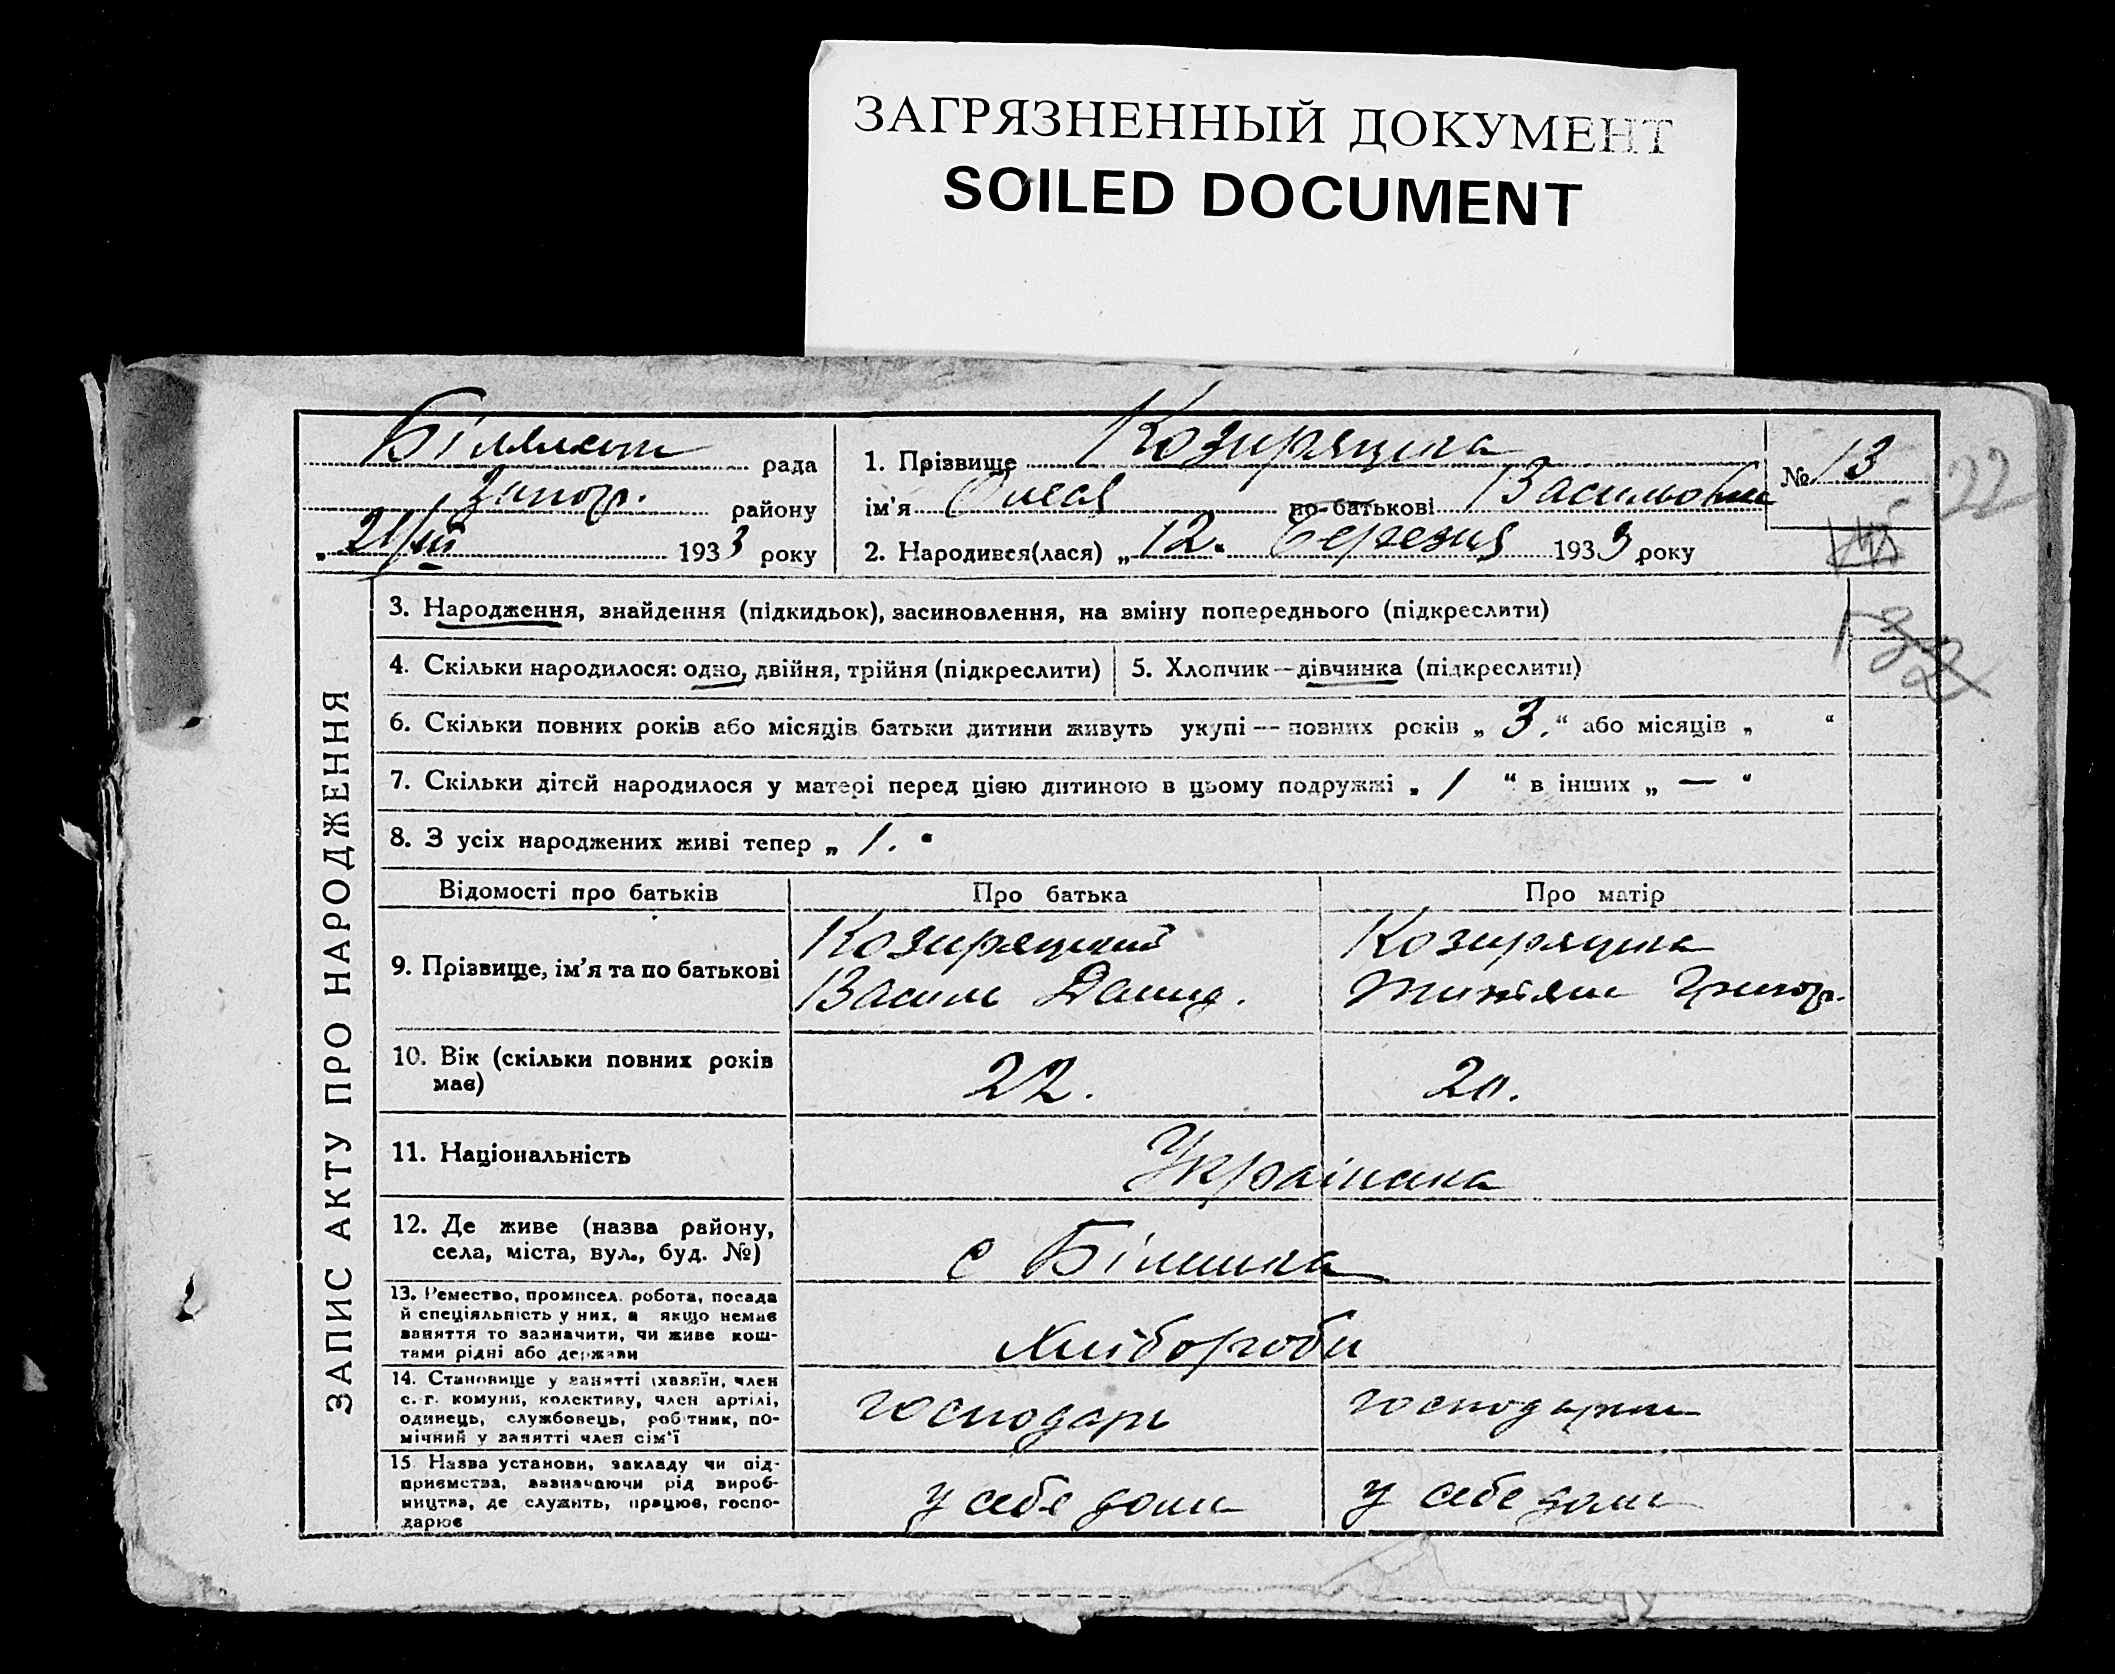 ЗАГРЯЗНЕННЫЙ ДОКУМЕНТ
SOILED DOCUMENT
рада
району
„ 21/III 1933 року
1. Прізвище Козиряцька
ім'я Олеся по-батькові Васильовна
2. Народився(лася) „12. Березня 1933 року
№ 13
22
ЗАПИС АКТУ ПРО НАРОДЖЕННЯ
3. Народження, знайдення (підкидьок), засиновлення, на зміну попереднього (підкреслити)
4. Скільки народилося: одно, двійня, трійня (підкреслити)
5. Хлопчик—дівчинка (підкреслити)
6. Скільки повних років або місяців батьки дитини живуть укупі — повних років „ 3. “ або місяців „ “
7. Скільки дітей народилося у матері перед цією дитиною в цьому подружжі „ 1 “ в інших „ — “
8. З усіх народжених живі тепер „ 1. “
Відомості про батьків
Про батька
Про матір
9. Прізвище, ім'я та по батькові
Козиряцький
Василь Демид.
Козиряцька
Григор.
10. Вік (скільки повних років
має)
22.
20.
11. Національність
Українська
12. Де живе (назва району,
села, міста, вул., буд. №)
с
13. Ремество, промисел. робота, посада
й спеціяльність у них, а якщо немає
заняття то зазначити, чи живе кош-
тами рідні або держави
Хлібороби
14. Становище у занятті (хазяїн, член
с.-г. комуни, колективу, член артілі,
одинець, службовець, робітник, по-
мічний у занятті член сім'ї
господарь
господарка
15. Назва установи, закладу чи під-
приємства, зазначаючи рід вироб-
ництва, де служить, працює, госпо-
дарює
у себе дома
у себе дома